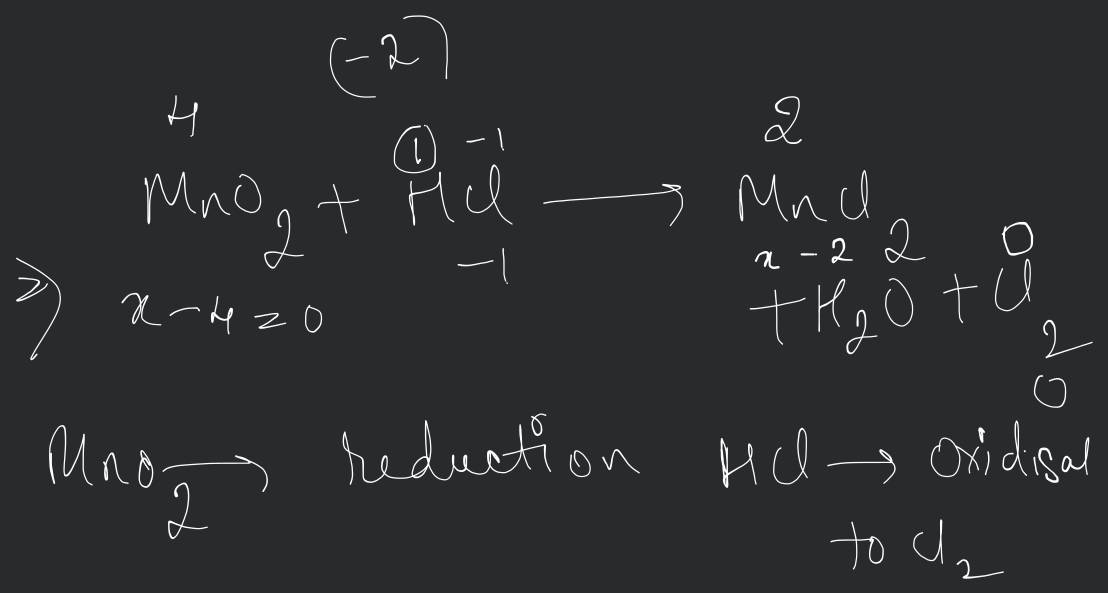 (-2)
4 1 -1 2
MnO2 + HCl → MnCl2
-1 x - 2 0
⇒ x - 4 = 0 + H2O + Cl2
0
MnO2 → reduction HCl → Oxidisal
to Cl2